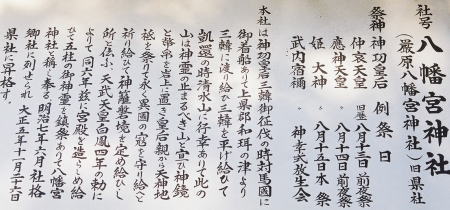 社号 八幡宮神社
(厳原八幡宮神社)旧県社
祭神 神功皇后 例祭日
仲哀天皇 旧暦 八月十三日 前夜祭
應神天皇 八月十四日 前夜祭
姫大神 八月十五日 本祭
武内宿禰 神幸式放生会
本社は神功皇后三韓御征伐の時対馬國に
御着船ありて上県郡和珥の津より
三韓に渡り給ひ三韓を平け給ひて
凱還の時清水山に行幸ありて此の
山は神霊の止まるべき山と宣ひ神鏡
と幣帛を岩上に置き皇后親から天神地
祗を祭りて永く異國の冠を守り給へと
祈り給ひて神籬磐境を定め給ひし
所と伝ふ 天武天皇白鳳四年の勅に
よりて同六年茲に宮殿を造らしめ給
ひて五柱の御神霊を鎮祭ありて八幡宮
神社と稱し奉る 明治七年六月社格
郷社に列せられ 大正五年十一月二十六日
県社に昇格す